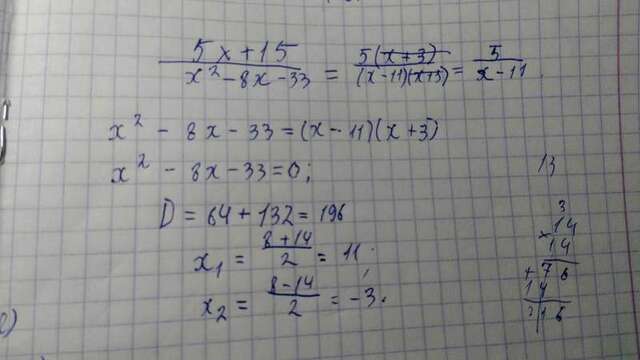 (5x+15)/(x²-8x-33) = (5(x+3))/((x-11)(x+3)) = 5/(x-11)
x² - 8x - 33 = (x-11)(x+3)
x² - 8x - 33 = 0;
13
D = 64 + 132 = 196
x₁ = (8+14)/2 = 11;
x₂ = (8-14)/2 = -3.
3
×14
14
+76
14
e)